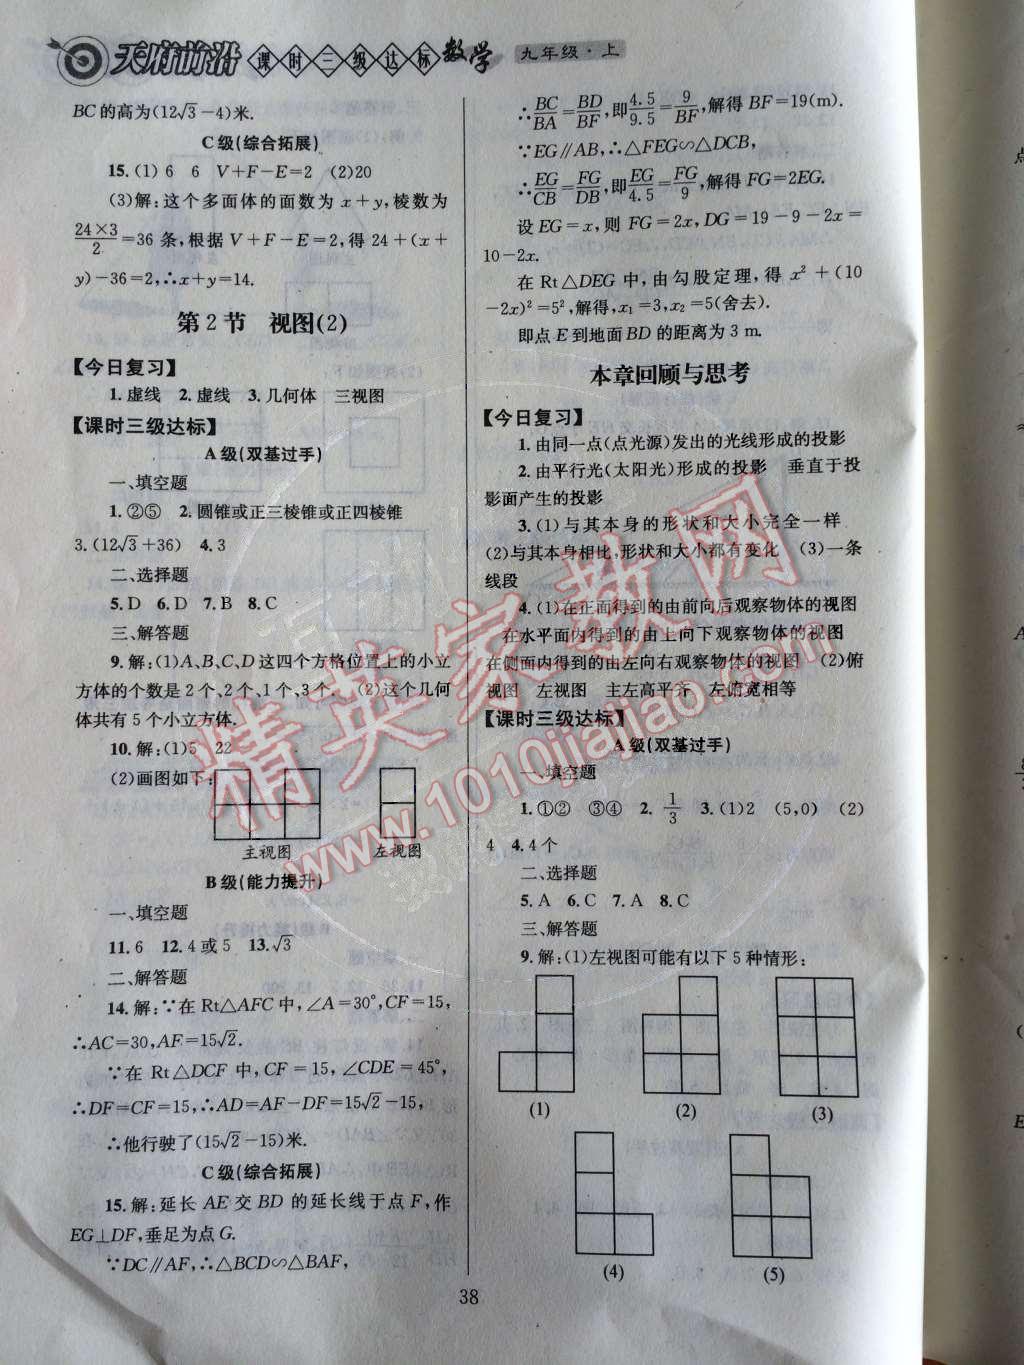 天府前沿 课时三级达标 数学 九年级·上
BC的高为(12√3-4)米.
C级(综合拓展)
15.(1) 6 6 V+F-E=2 (2)20
(3)解:这个多面体的面数为 x+y,棱数为
24×3/2=36 条,根据 V+F-E=2,得 24+(x+
y)-36=2,∴x+y=14.
第2节 视图(2)
【今日复习】
1.虚线 2.虚线 3.几何体 三视图
【课时三级达标】
A级(双基过手)
一、填空题
1.②⑤ 2.圆锥或正三棱锥或正四棱锥
3.(12√3+36) 4.3
二、选择题
5.D 6.D 7.B 8.C
三、解答题
9.解:(1)A、B、C、D这四个方格位置上的小立
方体的个数是2个、2个、1个、3个. (2)这个几何
体共有5个小立方体.
10.解:(1)5 22
(2)画图如下:
主视图 左视图
B级(能力提升)
一、填空题
11.6 12.4或5 13.√3
二、解答题
14.解:∵在 Rt△AFC中,∠A=30°,CF=15,
∴AC=30,AF=15√2.
∵在 Rt△DCF 中,CF=15,∠CDE=45°,
∴DF=CF=15,∴AD=AF-DF=15√2-15,
∴他行驶了(15√2-15)米.
C级(综合拓展)
15.解:延长 AE 交 BD 的延长线于点 F,作
EG⊥DF,垂足为点G.
∵DC∥AF,∴△BCD∽△BAF,
∴BC/BA=BD/BF,即4.5/9.5=9/BF,解得 BF=19(m).
∵EG∥AB,∴△FEG∽△DCB,
∴EG/CB=FG/DB,即EG/4.5=FG/9,解得 FG=2EG.
设 EG=x,则 FG=2x,DG=19-9-2x=
10-2x.
在 Rt△DEG 中,由勾股定理,得 x²+(10
-2x)²=5²,解得,x₁=3,x₂=5(舍去).
即点 E 到地面 BD 的距离为 3 m.
本章回顾与思考
【今日复习】
1.由同一点(点光源)发出的光线形成的投影
2.由平行光(太阳光)形成的投影 垂直于投
影面产生的投影
3.(1)与其本身的形状和大小完全一样
(2)与其本身相比,形状和大小都有变化 (3)一条
线段
4.(1)在正面得到的由前向后观察物体的视图
在水平面内得到的由上向下观察物体的视图
在侧面内得到的由左向右观察物体的视图 (2)俯
视图 左视图 主左高平齐 左俯宽相等
【课时三级达标】
A级(双基过手)
一、填空题
1.①② ③④ 2.1/3 3.(1)2 (5,0) (2)
4 4.4个
二、选择题
5.A 6.C 7.A 8.C
三、解答题
9.解:(1)左视图可能有以下5种情形:
(1) (2) (3)
(4) (5)
38
精英家教网
www.1010jiajiao.com